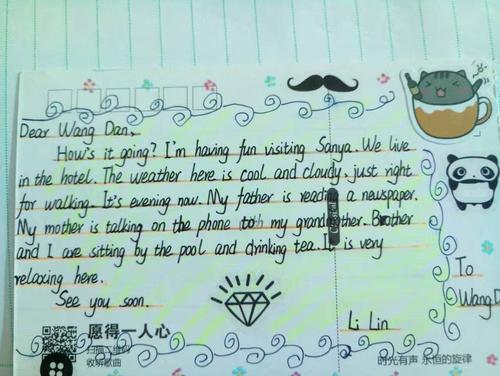 Dear Wang Dan,
How's it going? I'm having fun visiting Sanya. We live
in the hotel. The weather here is cool and cloudy, just right
for walking. It's evening now. My father is reading a newspaper.
My mother is talking on the phone to my grandmother. Brother
and I are sitting by the pool and drinking tea. It is very
relaxing here.
See you soon.
To
Wang D
Li Lin
愿得一人心
扫描二维码
收听歌曲
时光有声 永恒的旋律